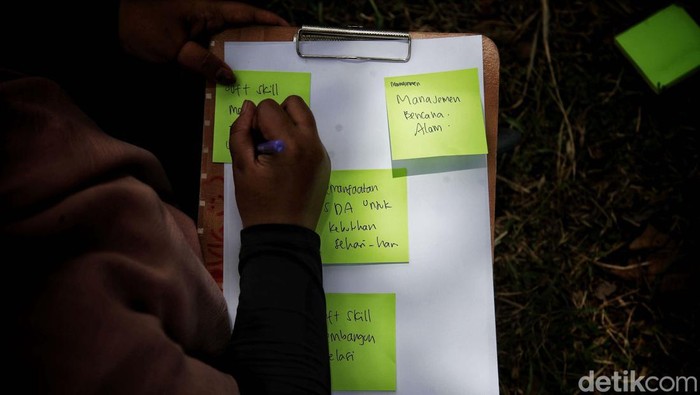 soft skill
Manajemen
Manajemen
Bencana.
Alam.
manfaatan
SDA untuk
kebutuhan
Sehari-hari
oft skill
mbangun
elasi
detikcom